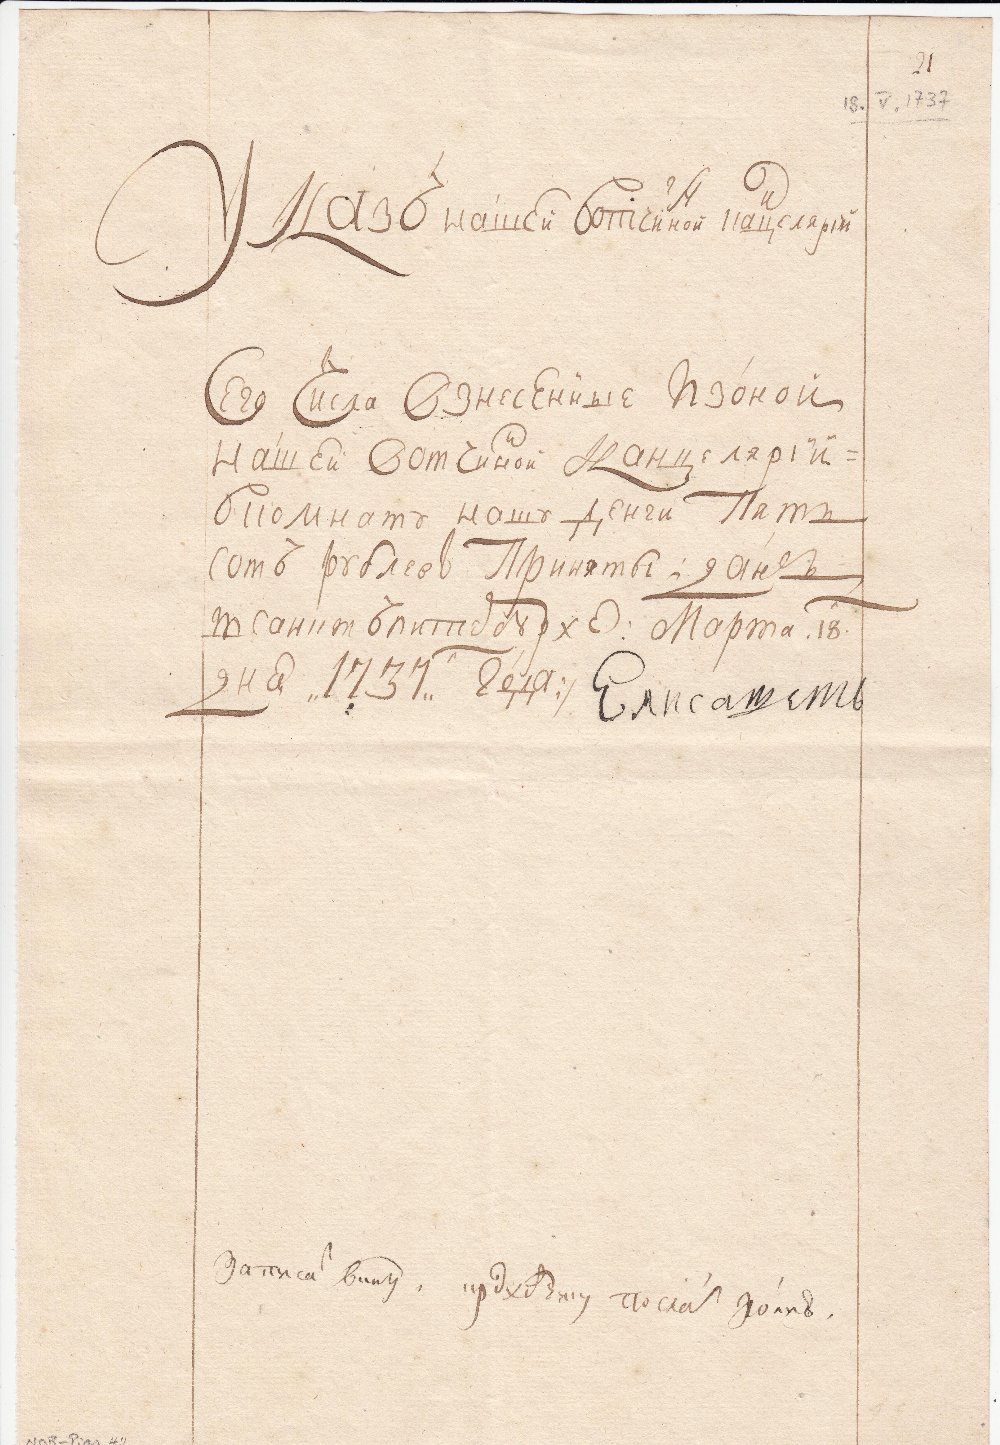 21
18. V. 1737
Указъ нашей вотчиной канцелярїй
Сего числа взнесенные изоной
нашей вотчиной канцелярїй =
вкомнату нашу денги пять
сотъ рублевъ приняты: данъ
всанктъпитербурхе: Марта .18.
дня „1737„ года:/ Елисаветъ
Записа вкнигу, послать